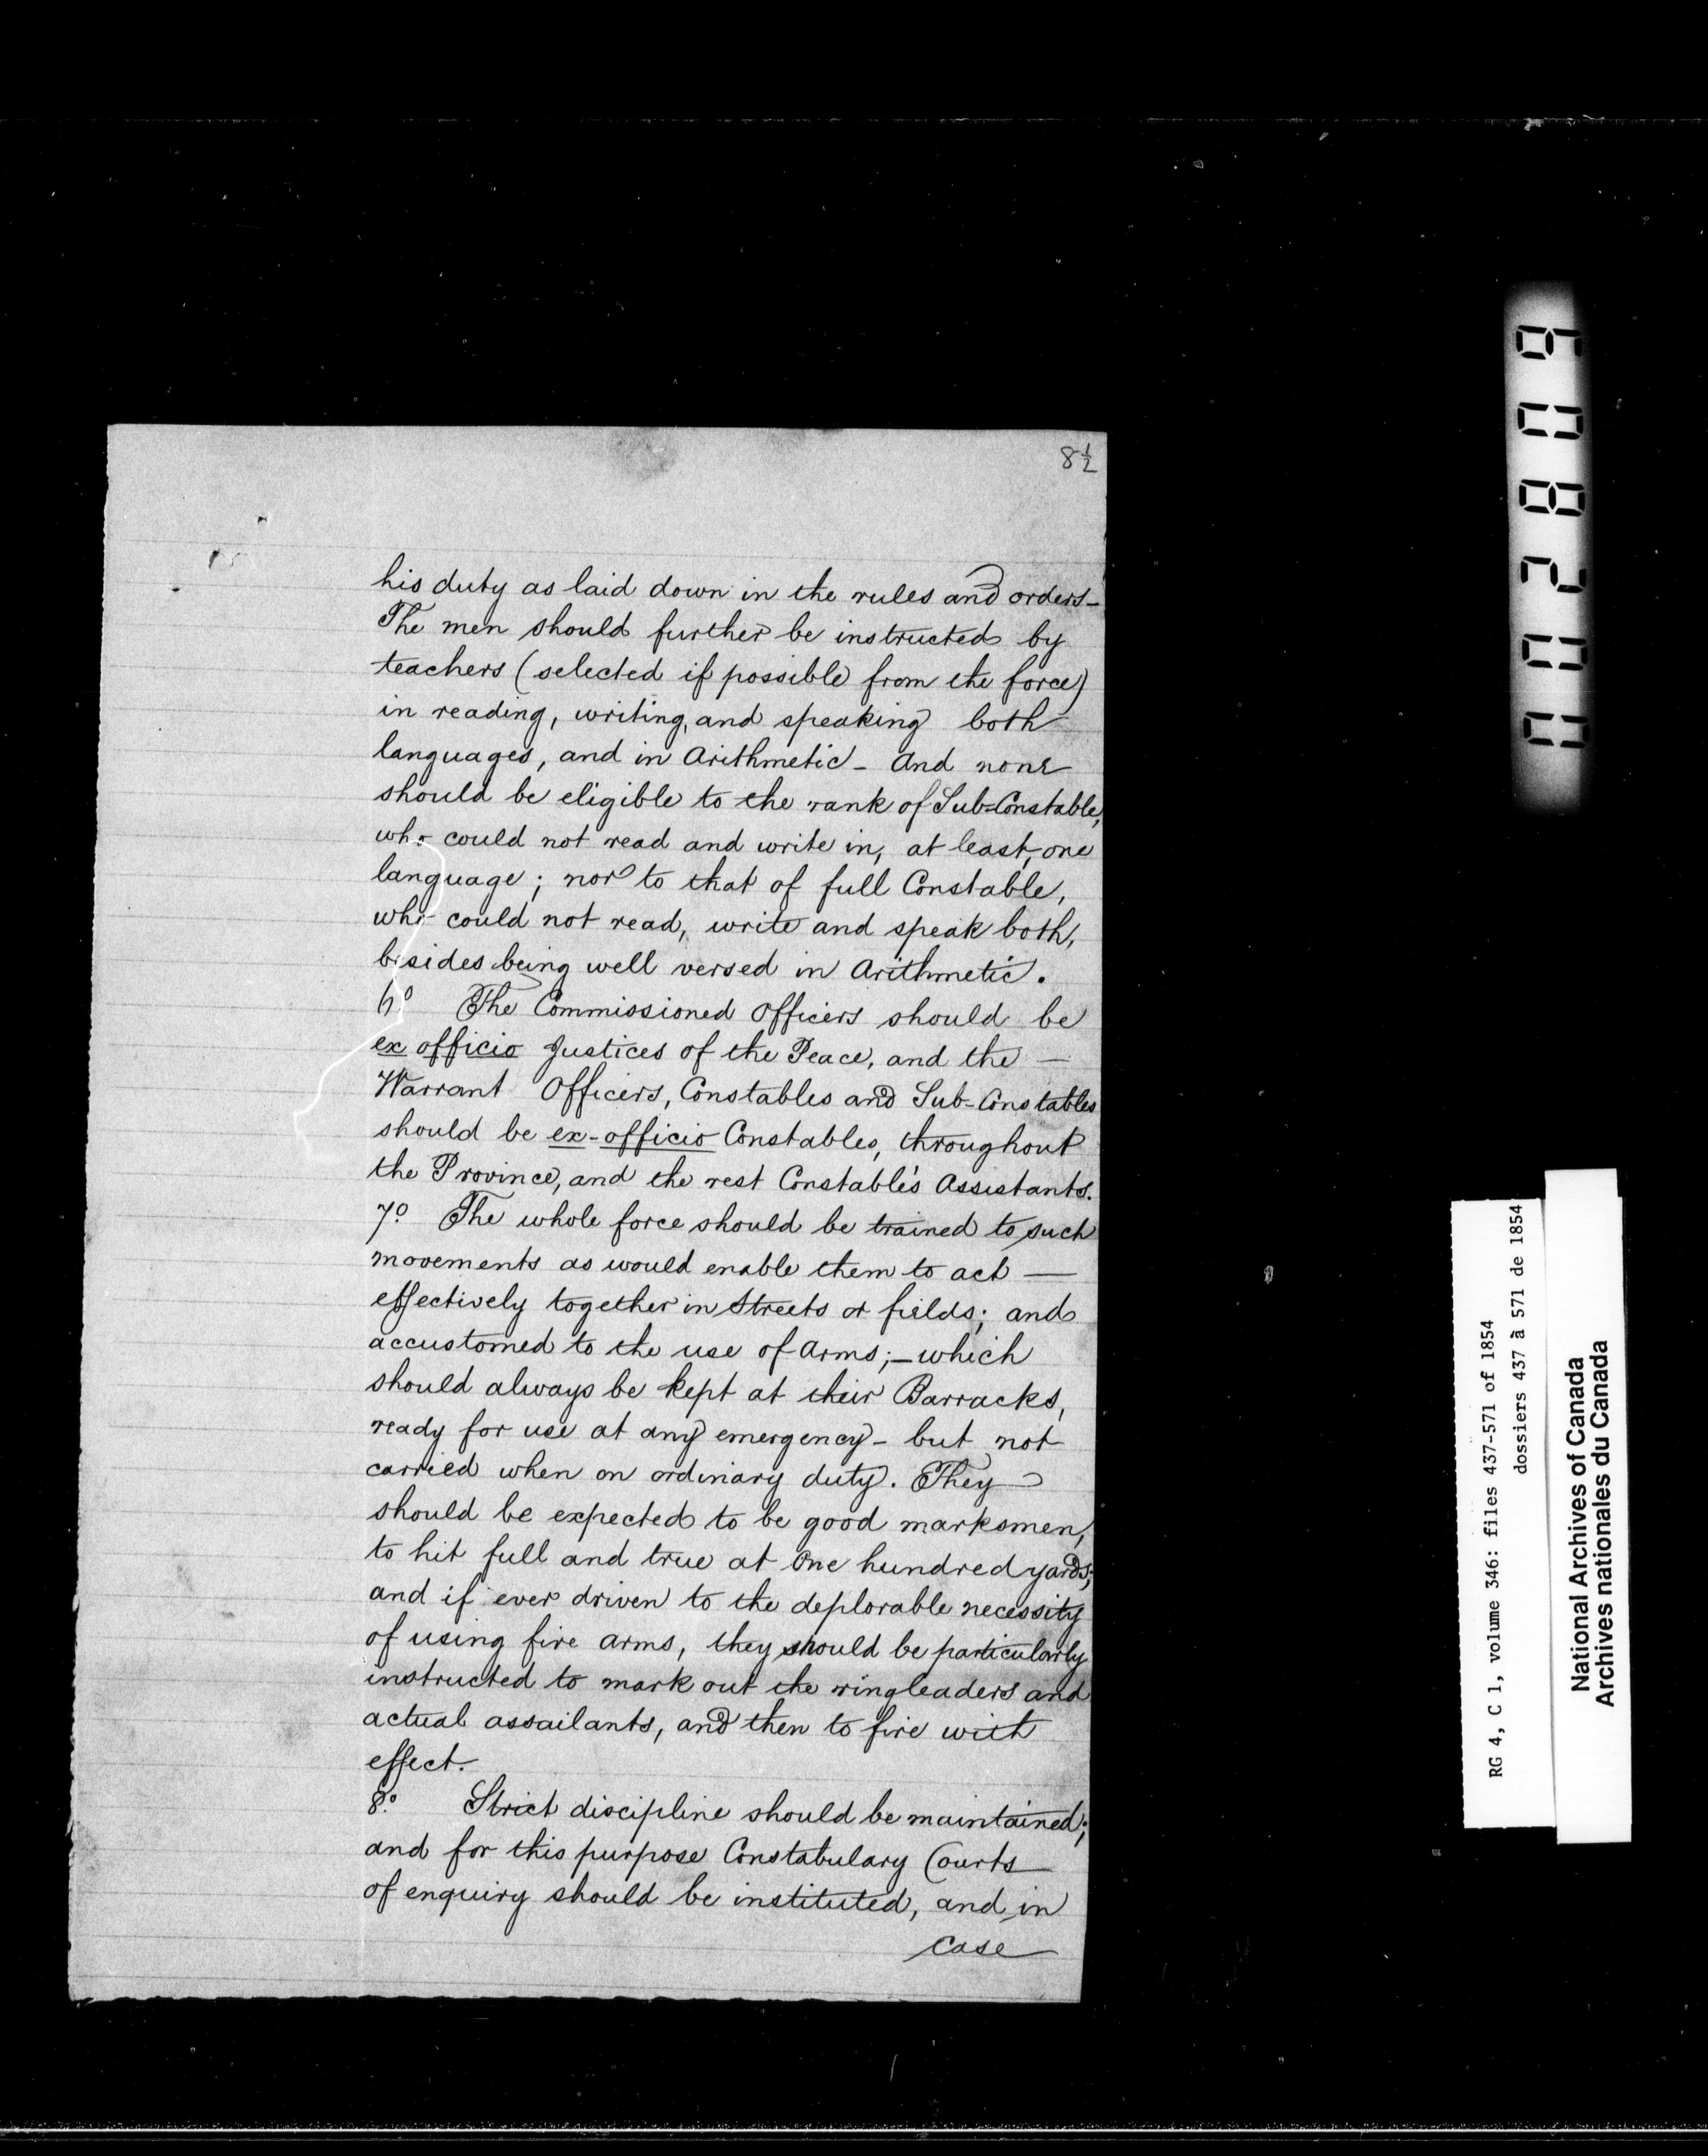 8½
his duty as laid down in the rules and orders–
The men should further be instructed by
teachers (selected if possible from the force)
in reading, writing, and speaking both
languages, and in Arithmetic – And none
should be eligible to the rank of Sub-Constable,
who could not read and write in, at least, one
language; nor to that of full Constable,
who could not read, write and speak both,
besides being well versed in Arithmetic.
6º The Commissioned Officers should be
ex officio Justices of the Peace, and the —
Warrant Officers, Constables and Sub-Constables
should be ex-officio Constables, throughout
the Province, and the rest Constable's Assistants.
7º The whole force should be trained to such
movements as would enable them to act —
effectively together in Streets or fields; and
accustomed to the use of Arms; – which
should always be kept at their Barracks,
ready for use at any emergency – but not
carried when on ordinary duty. They
should be expected to be good marksmen,
to hit full and true at One hundred yards;
and if ever driven to the deplorable necessity
of using fire arms, they should be particularly
instructed to mark out the ringleaders and
actual assailants, and then to fire with
effect.
8º Strict discipline should be maintained;
and for this purpose Constabulary Courts
of enquiry should be instituted, and in
case
002809
RG 4, C 1, volume 346: files 437-571 of 1854
dossiers 437 à 571 de 1854
National Archives of Canada
Archives nationales du Canada